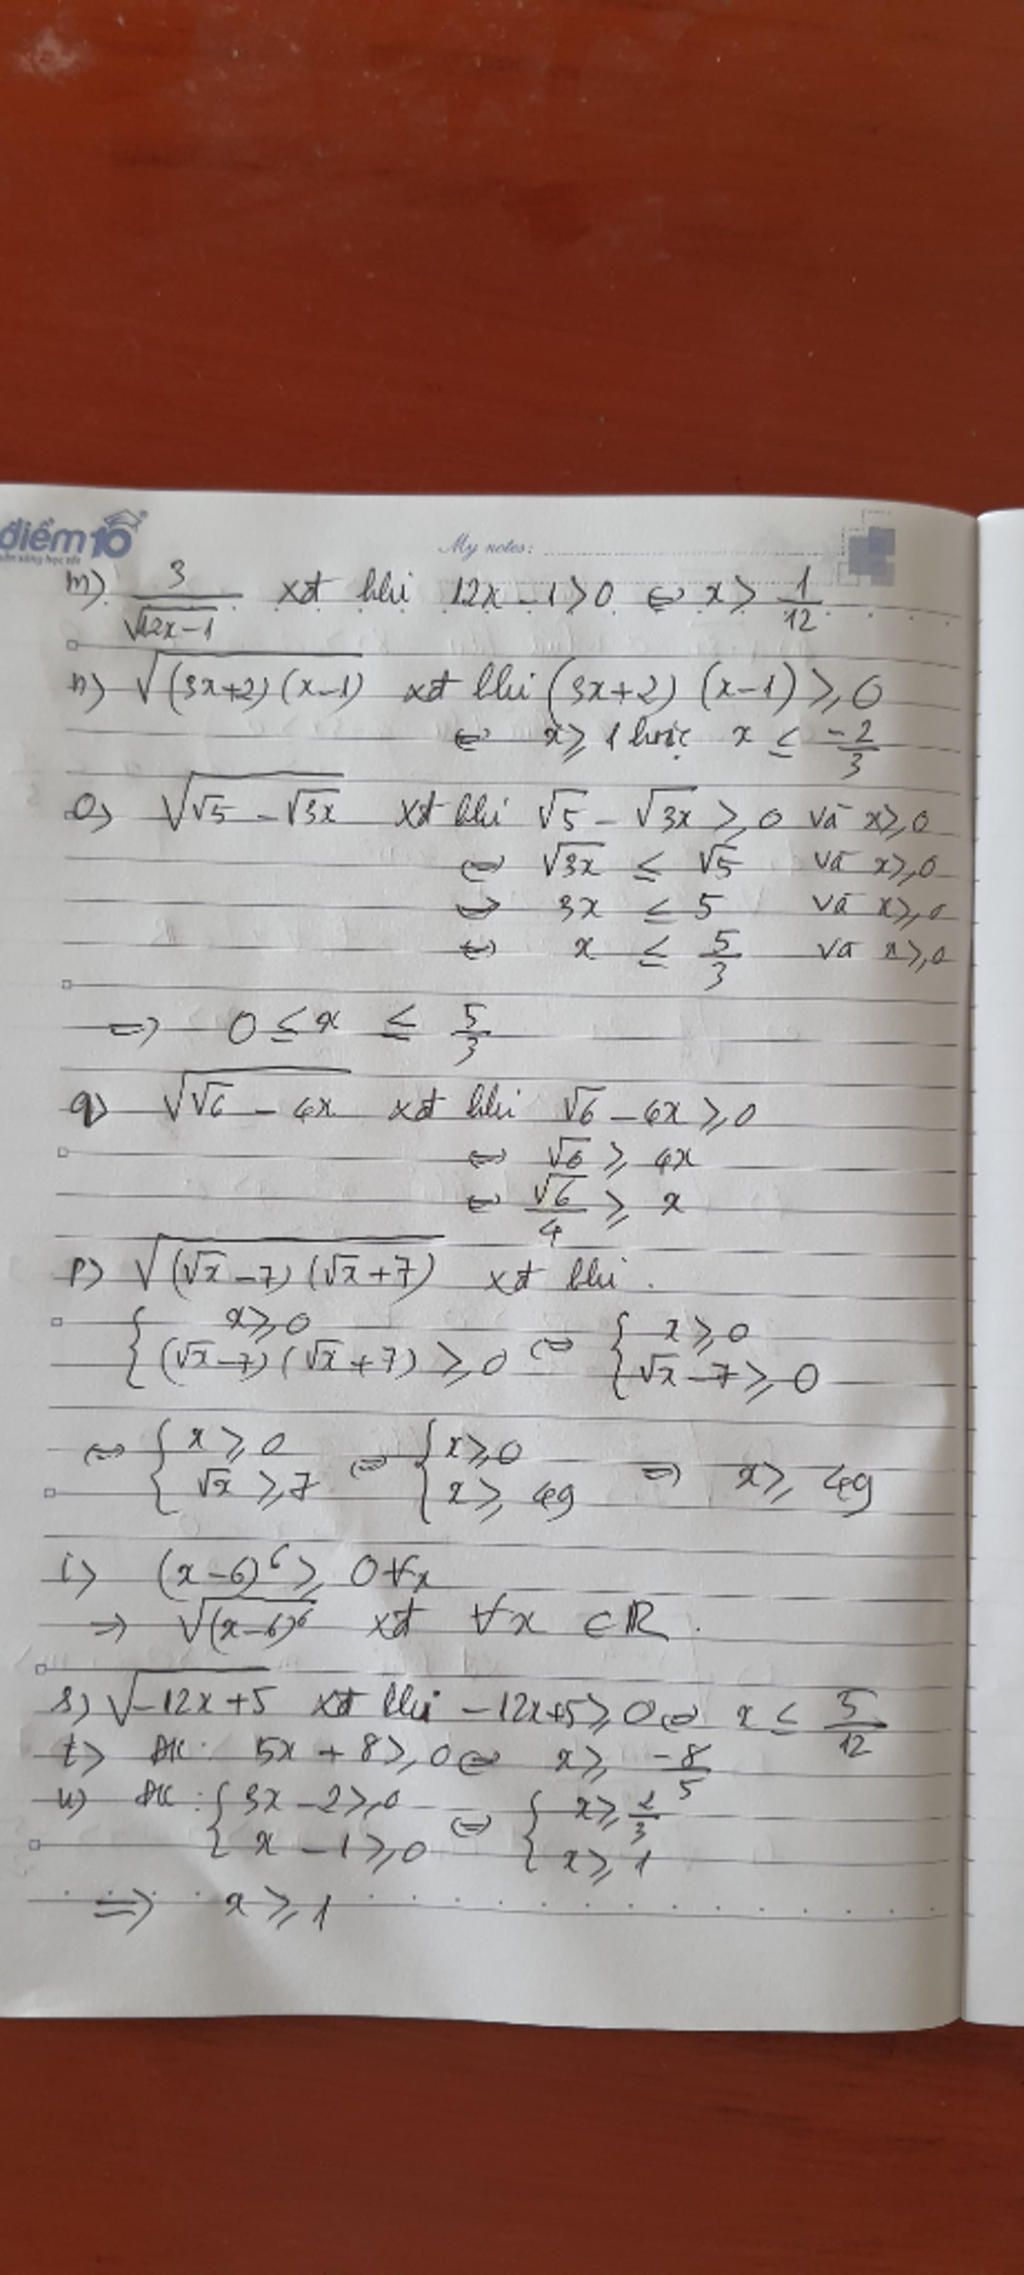 điểm 10
My notes:
m) 3/√(12x-1) xđ khi 12x-1>0 ⇔ x > 1/12
n) √((3x+2)(x-1)) xđ khi (3x+2)(x-1) ≥ 0
⇔ x ≥ 1 hoặc x ≤ -2/3
o) √(√5 - √3x) xđ khi √5 - √3x ≥ 0 và x ≥ 0
⇔ √3x ≤ √5 và x ≥ 0
⇔ 3x ≤ 5 và x ≥ 0
⇔ x ≤ 5/3 và x ≥ 0
⇒ 0 ≤ x ≤ 5/3
q) √(√6 - 4x) xđ khi √6 - 4x ≥ 0
⇔ √6 ≥ 4x
⇔ √6/4 ≥ x
p) √((√x-7)(√x+7)) xđ khi.
{ x ≥ 0 ⇔ { x ≥ 0
(√x-7)(√x+7) ≥ 0 √x-7 ≥ 0
⇔ { x ≥ 0 ⇔ { x ≥ 0 ⇒ x ≥ 49
√x ≥ 7 x ≥ 49
i) (x-6)⁶ ≥ 0 ∀x
⇒ √(x-6)⁶ xđ ∀x ∈ ℝ.
s) √(-12x+5) xđ khi -12x+5 ≥ 0 ⇔ x ≤ 5/12
t) ĐK: 5x + 8 ≥ 0 ⇔ x ≥ -8/5
u) ĐK: { 3x - 2 ≥ 0 ⇔ { x ≥ 2/3
x - 1 ≥ 0 x ≥ 1
⇒ x ≥ 1